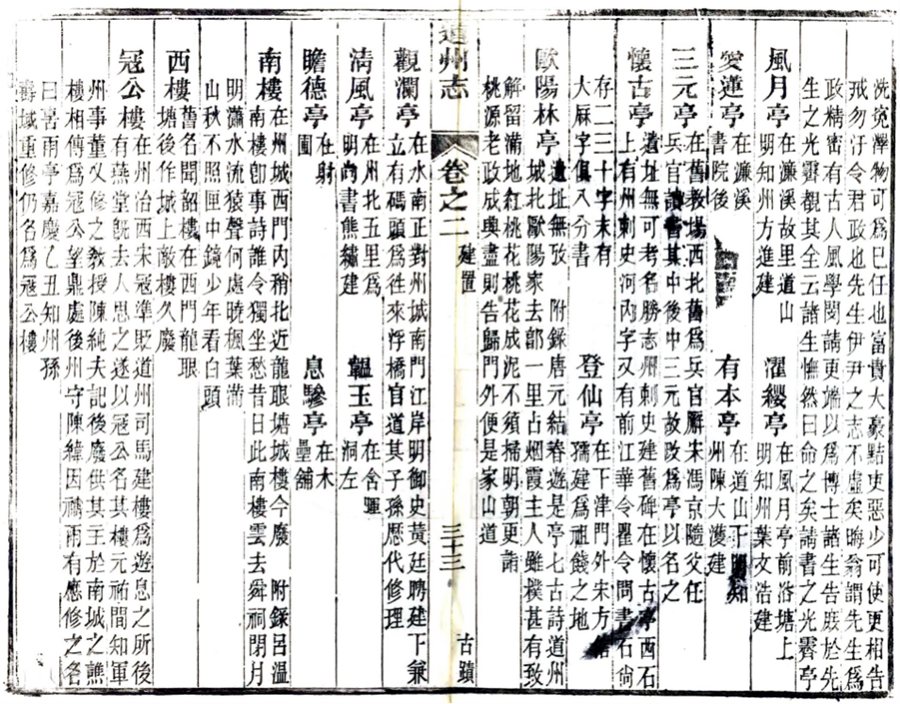 洗冤澤物可爲已任也富貴大豪黠吏惡少可使更相告
戒勿汙令君政也先生伊尹之志不虛矣晦翁謂先生爲
政精密有古人風學閱請吏端以爲博士諸生告厥於先
生之光霽覩其全云諸生憮然曰命之矣請書之光霽亭
風月亭 在濂溪故里道山
明知州方進建
濯纓亭 在風月亭前浴塘上
明知州葉文浩建
愛蓮亭 在濂溪
書院後
有本亭 在道山下明知
州陳大濩建
三元亭 在舊教場西北舊爲兵官廨宋馮京隨父任
兵官讀書其中後中三元故改爲亭以名之
懷古亭 遺址無可考名勝志州刺史建舊碑在懷古亭西石
上有州刺史河內字又有前江華令瞿令問書石尙
存二三十字末有
大麻字俱八分書
登仙亭 在下津門外宋方
孺建爲祖餞之地
歐陽林亭 遺址無攷 附錄唐元結春遊是亭七古詩道州
城北歐陽家去郭一里占烟霞主人雖樸甚有致
解留滿地紅桃花桃花成泥不須掃明朝更請
桃源老政成興盡則告歸門外便是家山道
道州志 卷之二 建置 三十三 古蹟
觀瀾亭 在水南正對州城南門江岸明御史黃廷聘建下兼
立有碼頭爲徃來浮橋官道其子孫歷代修理
淸風亭 在州北五里爲
明尙書熊繡建
韞玉亭 在含暉
洞左
瞻德亭 在射
圃
息驂亭 在木
壘舖
南樓 在州城西門內稍北近龍眼塘城樓今廢 附錄呂溫
南樓卽事詩誰令獨坐愁昔日此南樓雲去舜祠閉月
明瀟水流猿聲何處曉楓葉滿
山秋不照匣中鏡少年看白頭
西樓 舊名聞韶樓在西門龍眼
塘後作城上敵樓久廢
寇公樓 在州治西宋寇準貶道州司馬建樓爲遊息之所後
有燕堂旣去人思之遂以寇公名其樓元祐間知軍
州事董乂修之敎授陳純夫記後廢供其主於南城之譙
樓相傳爲寇公望鼎處後州守陳緯因禱雨有應修之名
曰喜雨亭嘉慶乙丑知州孫
壽域重修仍名爲寇公樓